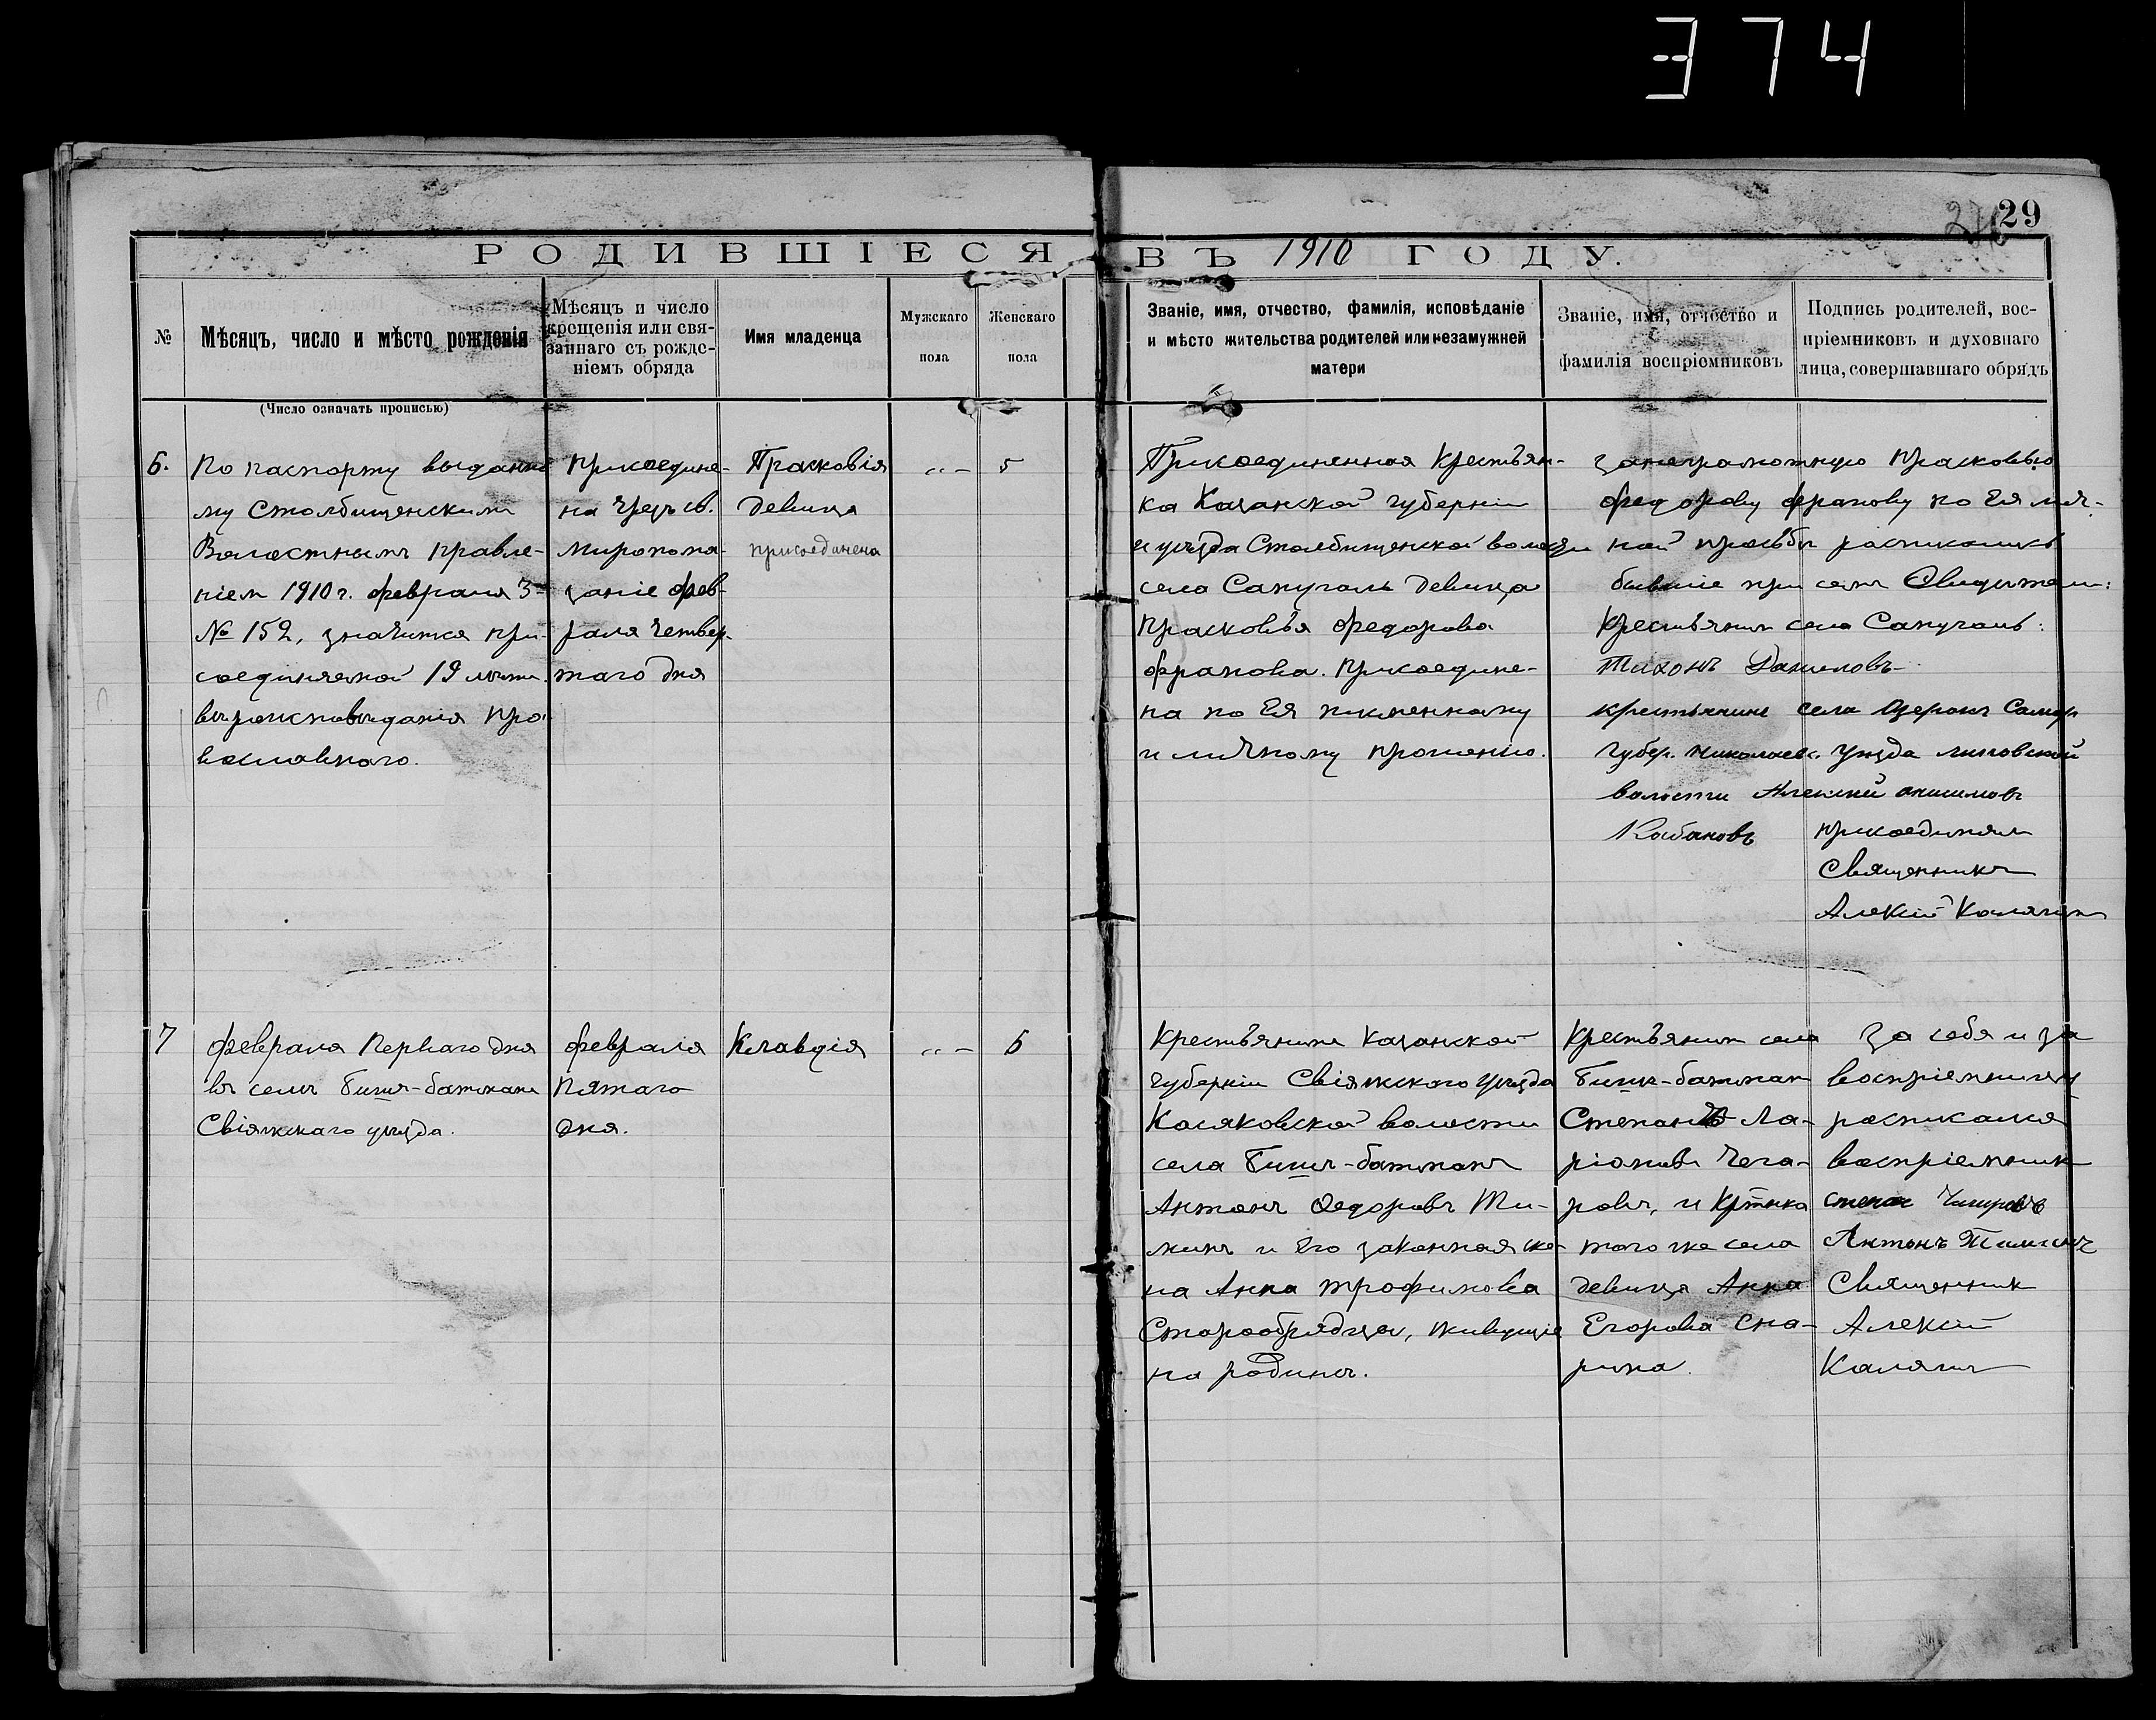 374
29
РОДИВШІЕСЯ ВЪ 1910 ГОДУ.
№
Мѣсяцъ, число и мѣсто рожденія
(Число означать прописью)
Мѣсяцъ и число
крещенія или свя-
заннаго съ рожде-
ніемъ обряда
Имя младенца
Мужскаго
пола
Женскаго
пола
Званіе, имя, отчество, фамилія, исповѣданіе
и мѣсто жительства родителей или незамужней
матери
Званіе, имя, отчество и
фамилія воспріемниковъ
Подпись родителей, вос-
пріемниковъ и духовнаго
лица, совершавшаго обрядъ
6.
По паспорту выданно
му Столбищенскимъ
Волостнымъ правле-
ніем 1910 г. февраля 3
№ 152, значится при-
соединяемой 19 лѣтъ
вѣроисповѣданія пра-
вославнаго.
присоедине-
на чрезъ св.
миропома-
заніе фев-
раля четвер-
таго дня
Прасковія
девица
присоединена
„ –
5
Присоединенная крестьян-
ка Казанской губерніи
и уѣзда Столбищенской волости
села Сапуголь девица
Прасковья федорова
франова. Присоедине-
на по Ея писменному
и личному прошенію.
за неграмотную прасковью
федорову франову по Ея лич-
ной просьбы росписались
бывшіе при семъ Свидѣтели:
Крестьянин села Сапуголь:
Тихонъ Даниловъ
крестьянинъ села Озерокъ Самар
губер. Николаевс. уѣзда липовской
волости Алексѣй анисимовъ
Кабановъ
присоединял
Священникъ
Алексій Калягин
7
февраля Перваго дня
въ селѣ Бишъ-батмане
Свіяжскаго уѣзда.
февраля
Пятаго
дня.
Клавдія
„ –
6
Крестьянинъ Казанской
губерніи Свіяжскаго уѣзда
Косяковской волости
села Бишъ-батманъ
Антонъ Федоровъ Ти-
минъ и Его законная же-
на Анна трофимова
Старообрядцы, живущіе
на родинѣ.
Крестьянин села
Бишъ-батман
Степанъ Ла-
ріоновъ Чега-
ровъ, и Крт҃нка
того же села
девица Анна
Егорова Сна-
рина.
За себя и за
воспріемницу
росписался
воспріемник
степан
Антонъ Тиминъ
Священник
Алексій
Калягин